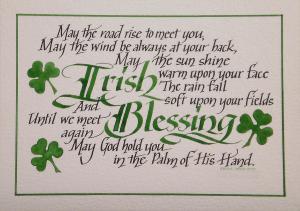 May the road rise to meet you,
May the wind be always at your back,
May the sun shine
warm upon your face
Irish
The rain fall
soft upon your fields
And
Until we meet
again
Blessing
May God hold you
in the Palm of His Hand.